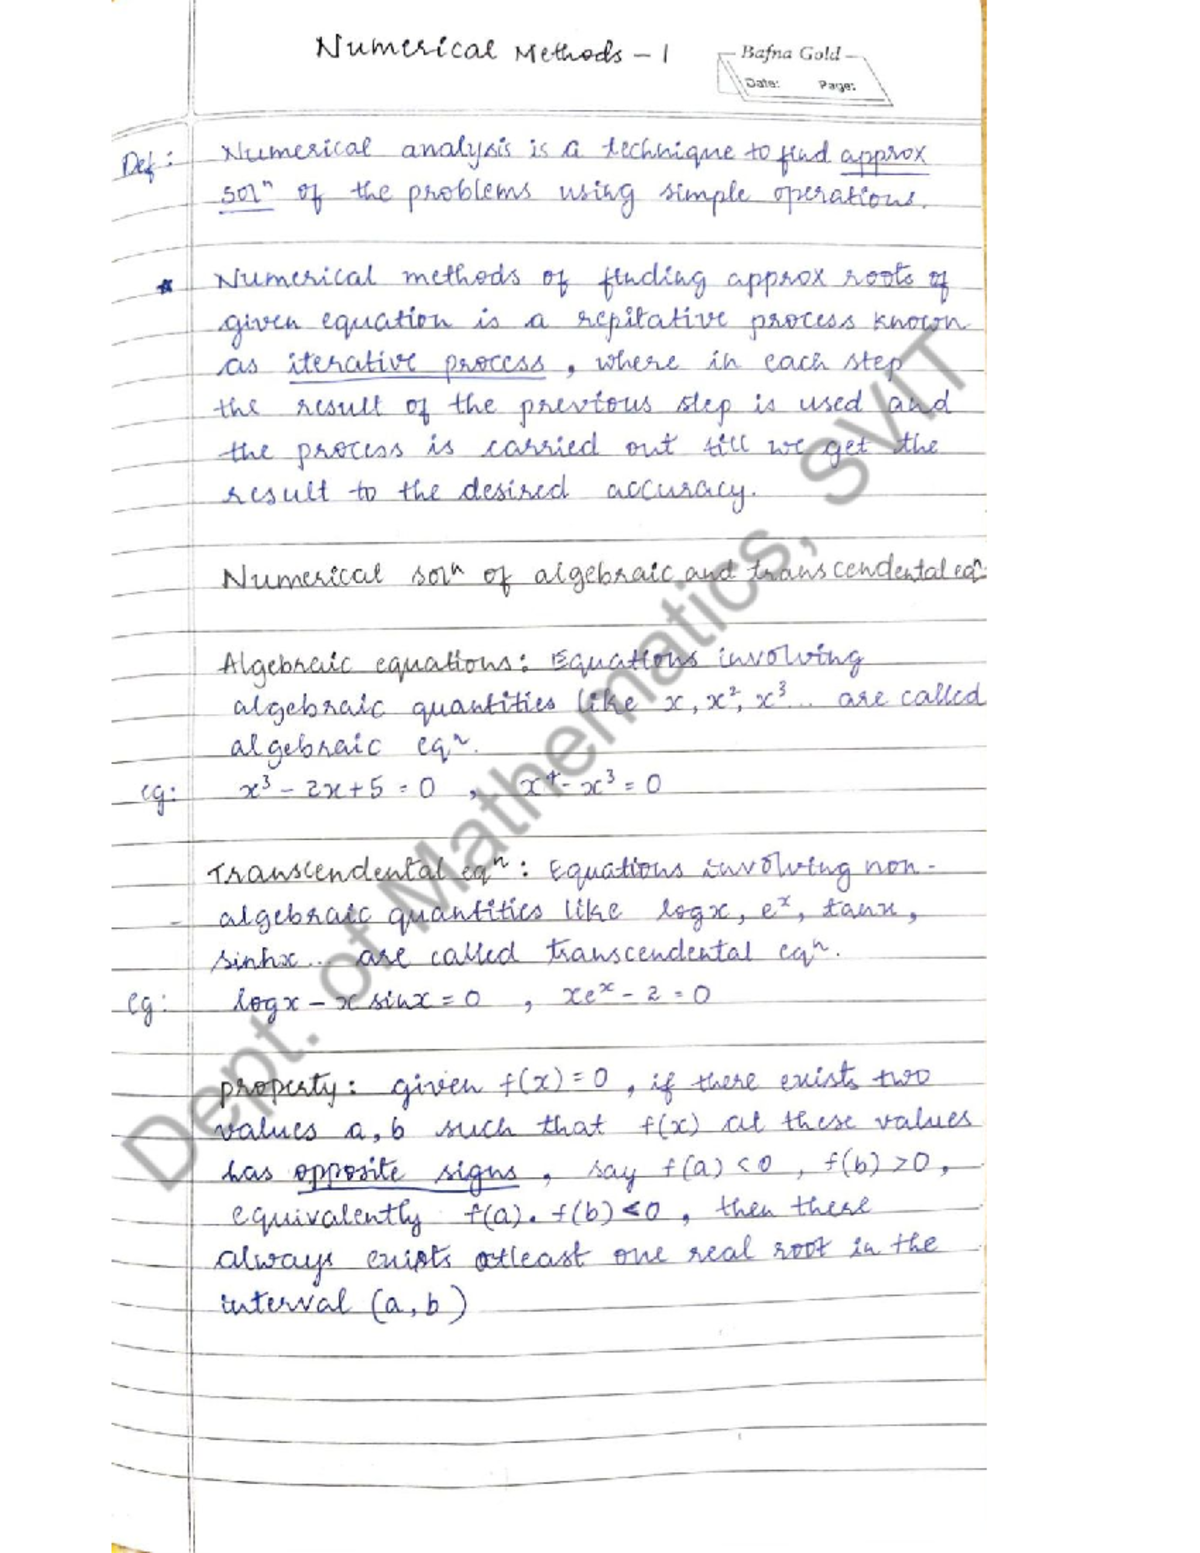 Numerical Methods - 1
Bafna Gold
Date: Page:
Def: Numerical analysis is a technique to find approx
solⁿ of the problems using simple operations.
* Numerical methods of finding approx roots of
given equation is a repitative process known
as iterative process, where in each step
the result of the previous step is used and
the process is carried out till we get the
result to the desired accuracy.
Numerical solⁿ of algebraic and transcendental eqⁿ.
Algebraic equations: Equations involving
algebraic quantities like x, x², x³... are called
algebraic eqⁿ.
eg: x³ - 2x + 5 = 0 , x⁴ - x³ = 0
Transcendental eqⁿ: Equations involving non-
algebraic quantities like logx, eˣ, tanx,
sinhx... are called transcendental eqⁿ.
eg: logx - x sinx = 0 , xeˣ - 2 = 0
property: given f(x) = 0, if there exists two
values a, b such that f(x) at these values
has opposite signs, say f(a) < 0, f(b) > 0,
equivalently f(a). f(b) < 0, then there
always exists atleast one real root in the
interval (a, b)
Dept. of Mathematics, SVIT